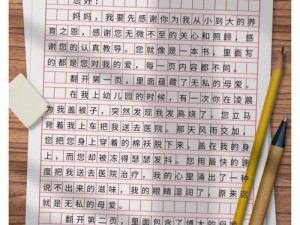 您好！
妈妈，我要先感谢你为我从小到大的养
育之恩，感谢您无微不至的关心和照顾，感
谢您的认真教导。您就像是一本书，里面写
的都是您对我的爱，每一页内容都不同。
翻开第一页，里面蕴藏了无私的母爱。
在我上幼儿园的时候，有一次你在凌晨
为我盖被子，突然发现我发高烧了，您立马
背着我上车把我送去医院。那天风雨交加，
您把您身上穿着的棉袄脱下来，盖在我的身
上，而您却被冻得瑟瑟发抖。您用最快的速
度把我送去医院治疗，我的心里涌出了一种
说不出来的滋味，我的眼睛湿润了，原来这
就是无私的母爱。
翻开第二页，里面包含了博大的母爱